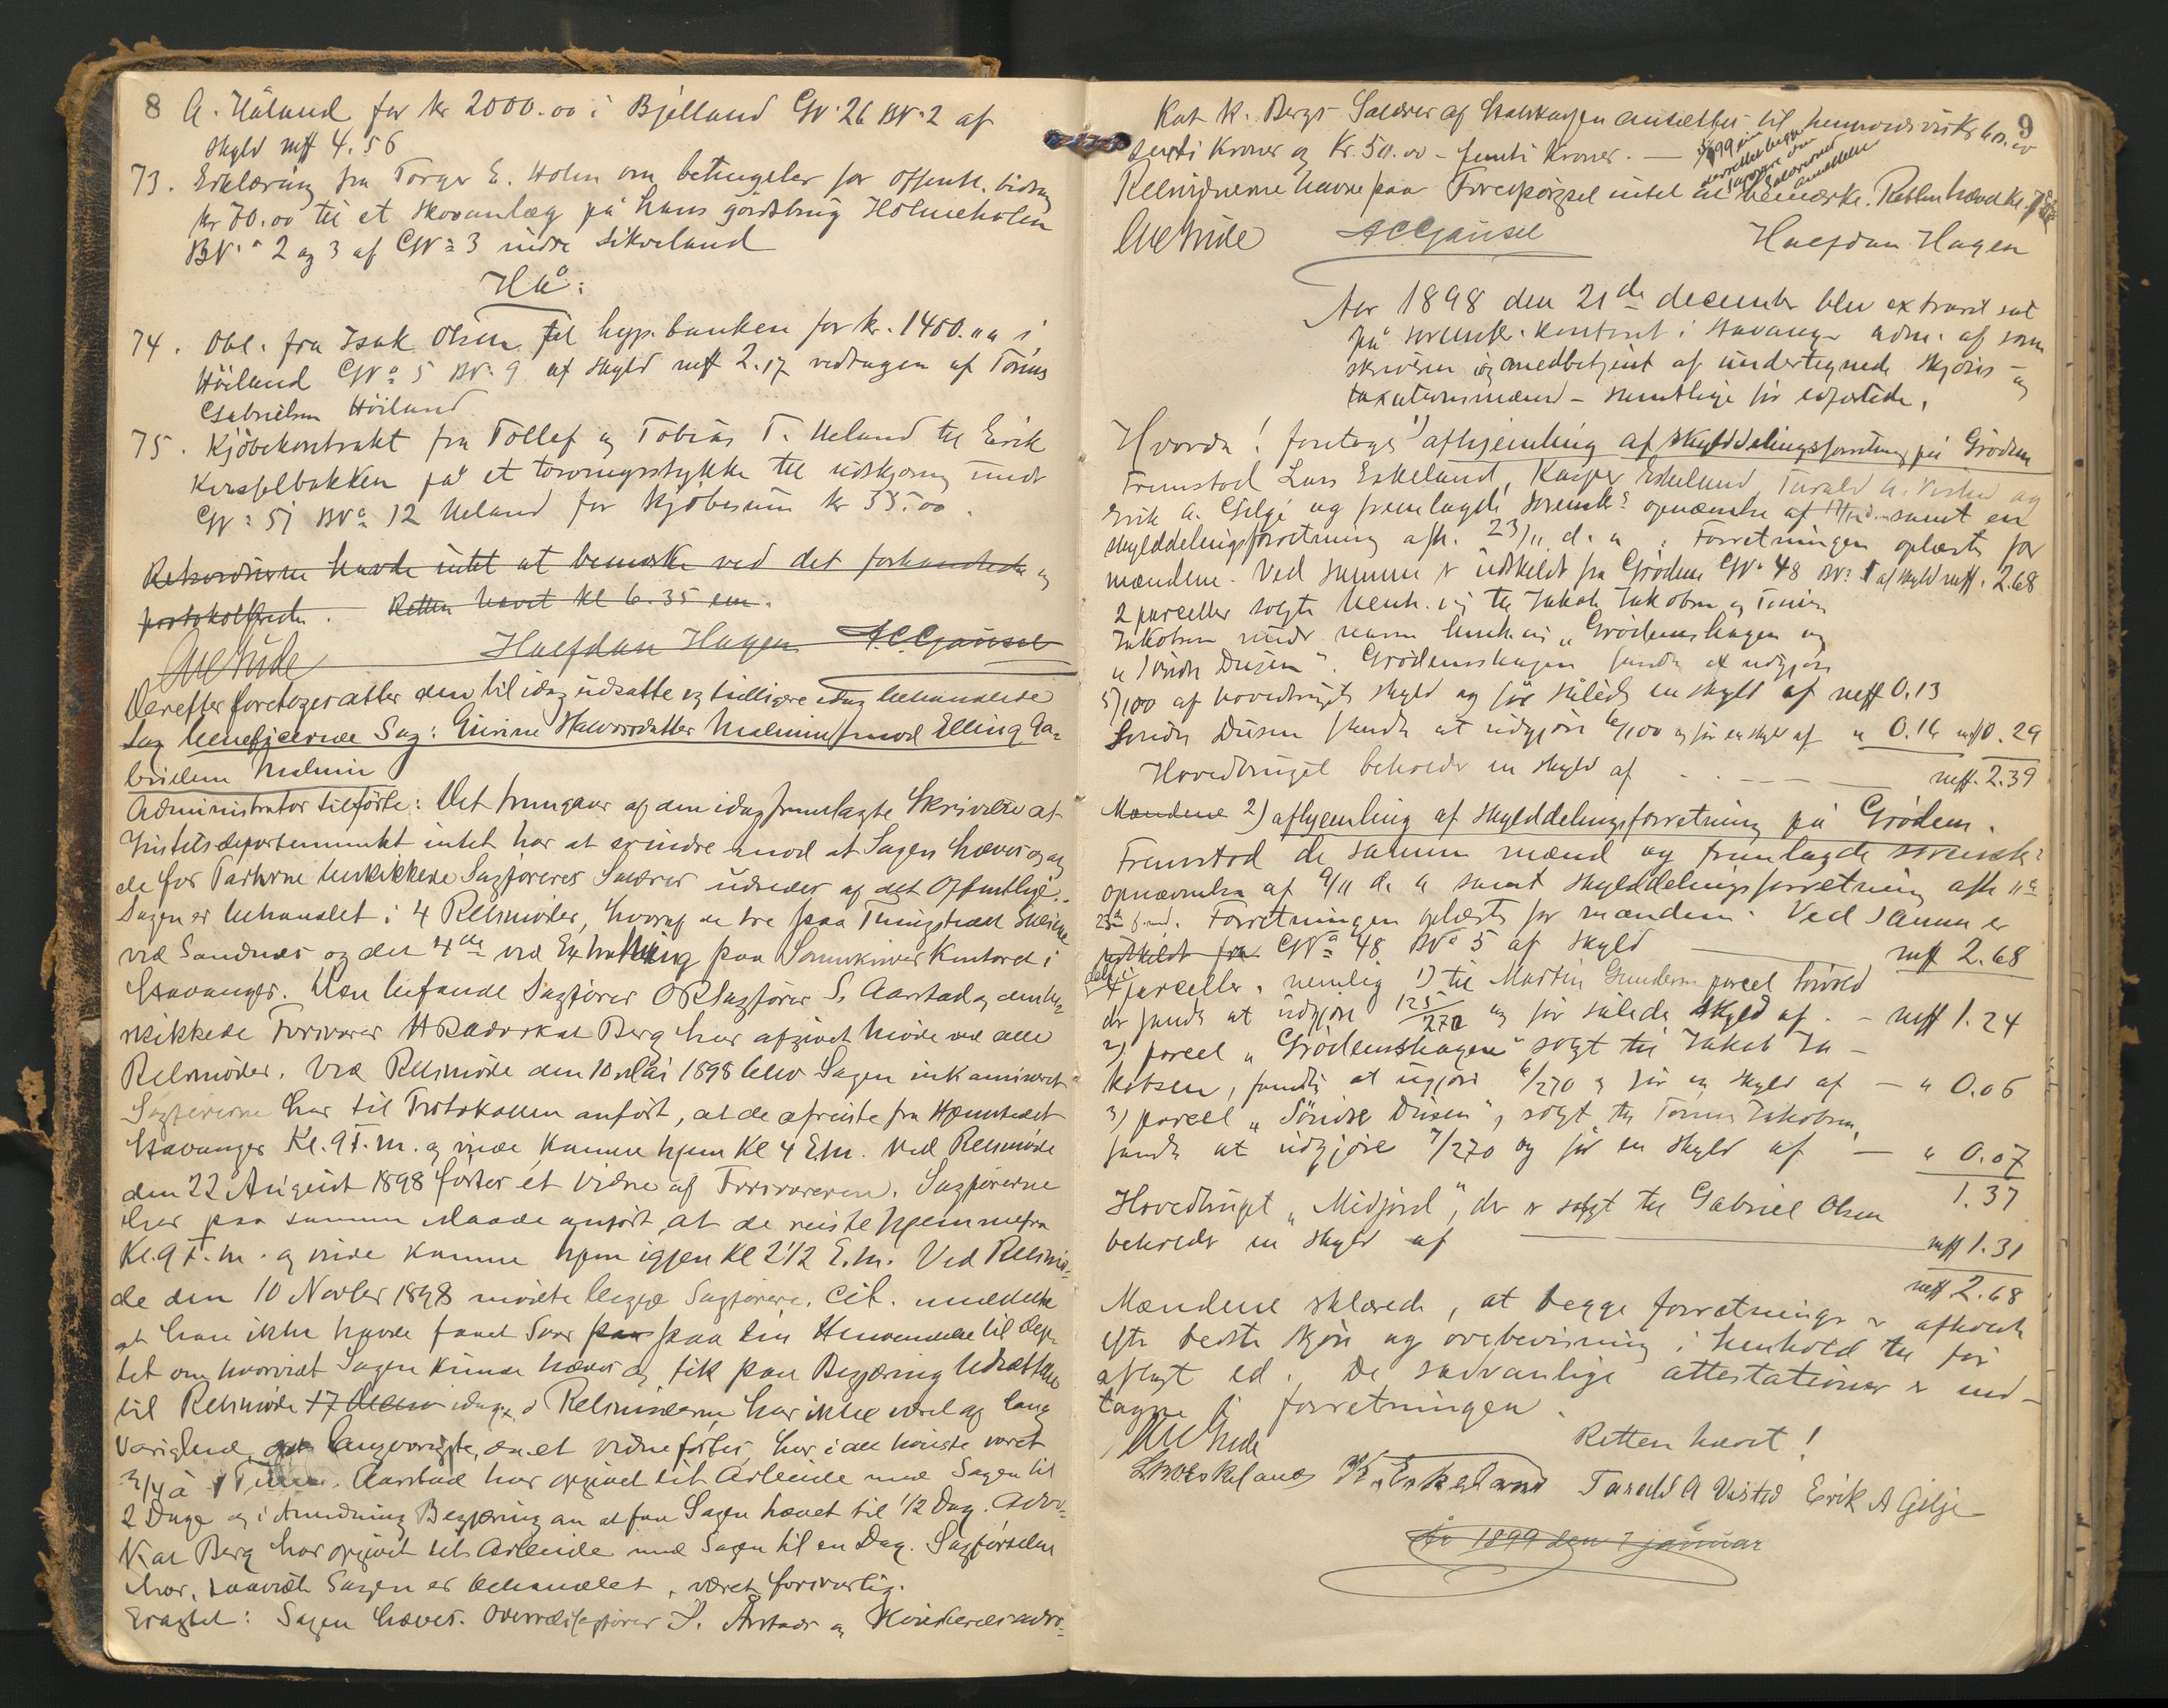 8 A. Håland for kr 2000.00 i Bjelland GN. 26 BN. 2 af
skyld mk 4.56
73. Erklæring fra Torger E. Holm om betingelser for offentl. bidrag
kr 70.00 til et skovanlæg på hans gårdsbrug Holmeholen
BN. 2 og 3 af GN 3 indre Sikveland
Hå:
74. Obl. fra Isak Olsen til hyp.banken for kr. 1400.00 i
Høiland GN 5 BN. 9 af skyld mk 2.17 vedtagen af Tønnes
Gabrielsen Høiland
75. Kjøbekontrakt fra Tollef og Tobias T. Ueland til Eirik
på et torvmyrstykke til udskjæring under
GN 51 BN 12 Ueland for kjøbesum kr 35.00.
havde intet at bemærke ved det forhandlede og
Retten hævet kl 6.35 em.
Halfdan Hagen A.C. Gausel
Derefter foretoges atter den til idag udsatte og tidligere idag behandlede
Sag beneficerede Sag: Halvorsdatter Malmin mod Elling Ga-
brielsen Malmin
Administrator tilførte: Det fremgaar af den idag fremlagte Skrivelse at
Justitsdepartementet intet har at erindre mod at Sagen hæves og at
de for Parterne beskikkede Sagføreres Salærer udredes af det Offentlige.
Sagen er behandlet i 4 Retsmøder, hvoraf de tre paa Thingstedet
ved Sandnes og det 4de ved Extrathing paa Sorenskriver Kontoret i
Stavanger. Den befalede Sagfører ORSagfører S. Aarstad og den be-
skikkede Forsvarer HRadvokat Berg har afgivet Møde ved alle
Retsmøder. Ved Retsmøde den 10 Mai 1898 blev Sagen inkamineret
Sagførerne har til Protokollen anført, at de afreiste fra Hjemstedet
Stavanger Kl. 9 F.m. og vilde komme hjem Kl 4 E.m. Ved Retsmøde
den 22 August 1898 førtes et Vidne af Forsvareren. Sagførerne
har paa samme Maade anført, at de reiste hjemmefra
Kl. 9 F.m. og vilde komme hjem igjen Kl 2 1/2 E.m. Ved Retsmø-
de den 10 Novbr 1898 mødte begge Sagførere. Cit. meddelte
at han ikke havde faaet Svar paa paa sin Henvendelse til Dep-
tet om hvorvidt Sagen kunde hæves og fik paa Begjæring Udsættelse
til Retsmøde 17 idag. Retsmøderne har ikke været af lang
Varighed langvarigste, da et Vidne førtes, har i det høieste varet
3/4 à 1 Time. Aarstad har opgivet sit Arbeide med Sagen til
2 Dage og i Anledning Begjæring om at faa Sagen hævet til 1/2 Dag. Advo-
kat Berg har opgivet sit Arbeide med Sagen til en Dag. Sagførselen
har, saavidt Sagen er behandlet, været forsvarlig.
Eragtet: Sagen hæves. Overretssagfører S. Årstads og Høiesteretsadvo-
9
kat K. Bergs Salærer af Statskassen ansættes til henholdsvis Kr 60.00
sexti Kroner og Kr. 50.00 - femti Kroner. —
Retsvidnerne havde paa Forespørgsel intet at bemærke. Retten hævet Kl.
A.C. Gausel Halfdan Hagen
Aar 1898 den 21de december blev extraret sat
på sorenskr. kontoret i Stavanger adm. af soren
skriveren og medbetjent af undertegnede skjøns - og
taxationsmænd - samtlige før edfæstede.
Hvorda! foretoges 1) afhjemling af skylddelingsforretning på Grødem
Fremstod Lars Eskeland, Kasper Eskeland, Tarald A. Visted og
Erik A. Gilje og fremlagde sorenskr. opnævnelse af samt en
skylddelingsforretning afh. 23/11 d. a. Forretningen oplæstes for
mændene. Ved samme er udskildt fra Grødem GN. 48 BN. 1 af skyld mk. 2.68
2 parceller solgte henh. vis til Jakob Jakobsen og Tønnes
Jakobsen under navn henh. vis „Grødemshagen og
„Søndre Dusen". Grødemshagen fandtes at udgjøre
5/100 af hovedbrugets skyld og får således en skyld af mk 0.13
Søndre Dusen fandtes at udgjøre 6/100 og får en skyld af „ 0.16 mk 0.29
Hovedbruget beholder en skyld af — mk. 2.39
Mændene 2) afhjemling af skylddelingsforretning på Grødem.
Fremstod de samme mænd og fremlagde sorenskr.
opnævnelse af 9/11 d. a. samt skylddelingsforretning afh.
23de s. md. Forretningen oplæstes for mændene. Ved samme er
udskildt fra GN 48 BN 5 af skyld — mk 2.68
4 parceller, nemlig 1) til Martin Gundersen parcel
der fandtes at udgjøre 125/270 og får således skyld af - mk 1.24
2) parcel „Grødemshagen" solgt til Jakob Ja-
kobsen, fandtes at udgjøre 6/270 og får en skyld af — „ 0.06
3) parcel „Søndre Dusen", solgt til Tønnes Jakobsen,
fandtes at udgjøre 7/270 og får en skyld af — „ 0.07
1.37
Hovedbruget „Midjord", der er solgt til Gabriel Olsen
beholder en skyld af — mk 1.31
mk 2.68
Mændene erklærede, at begge forretninger er afholdt
efter bedste skjøn og overbevisning i henhold til før
aflagt ed. De sædvanlige attestationer er ind-
tagne i forretningen.
Retten hævet!
L. Eskeland K. Eskeland Tarald A Visted Erik A Gilje
År 1899 den 7 januar